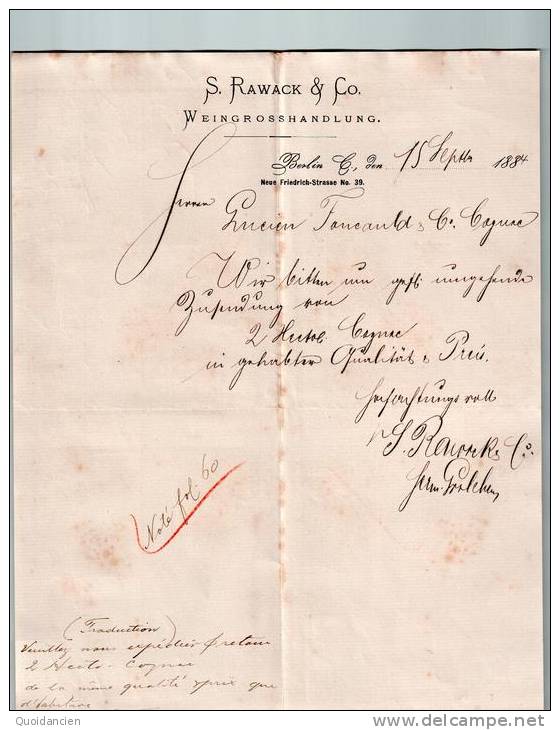 S. RAWACK & Co.
WEINGROSSHANDLUNG.
Berlin C, den 15 Septbr 1884
Neue Friedrich-Strasse No. 39.
Herren
Lucien Foucauld & Co. Cognac
Wir bitten um gefl. umgehende
Zusendung von
2 Hectol. Cognac
in gehabter Qualität & Preis.
Hochachtungsvoll
S. Rawack & Co.
Noté fol 60
(Traduction)
Veuillez nous expédier retour
2 Hecto- Cognac
de la même qualité & prix que
d'habitude
Quoidancien
www.delcampe.net